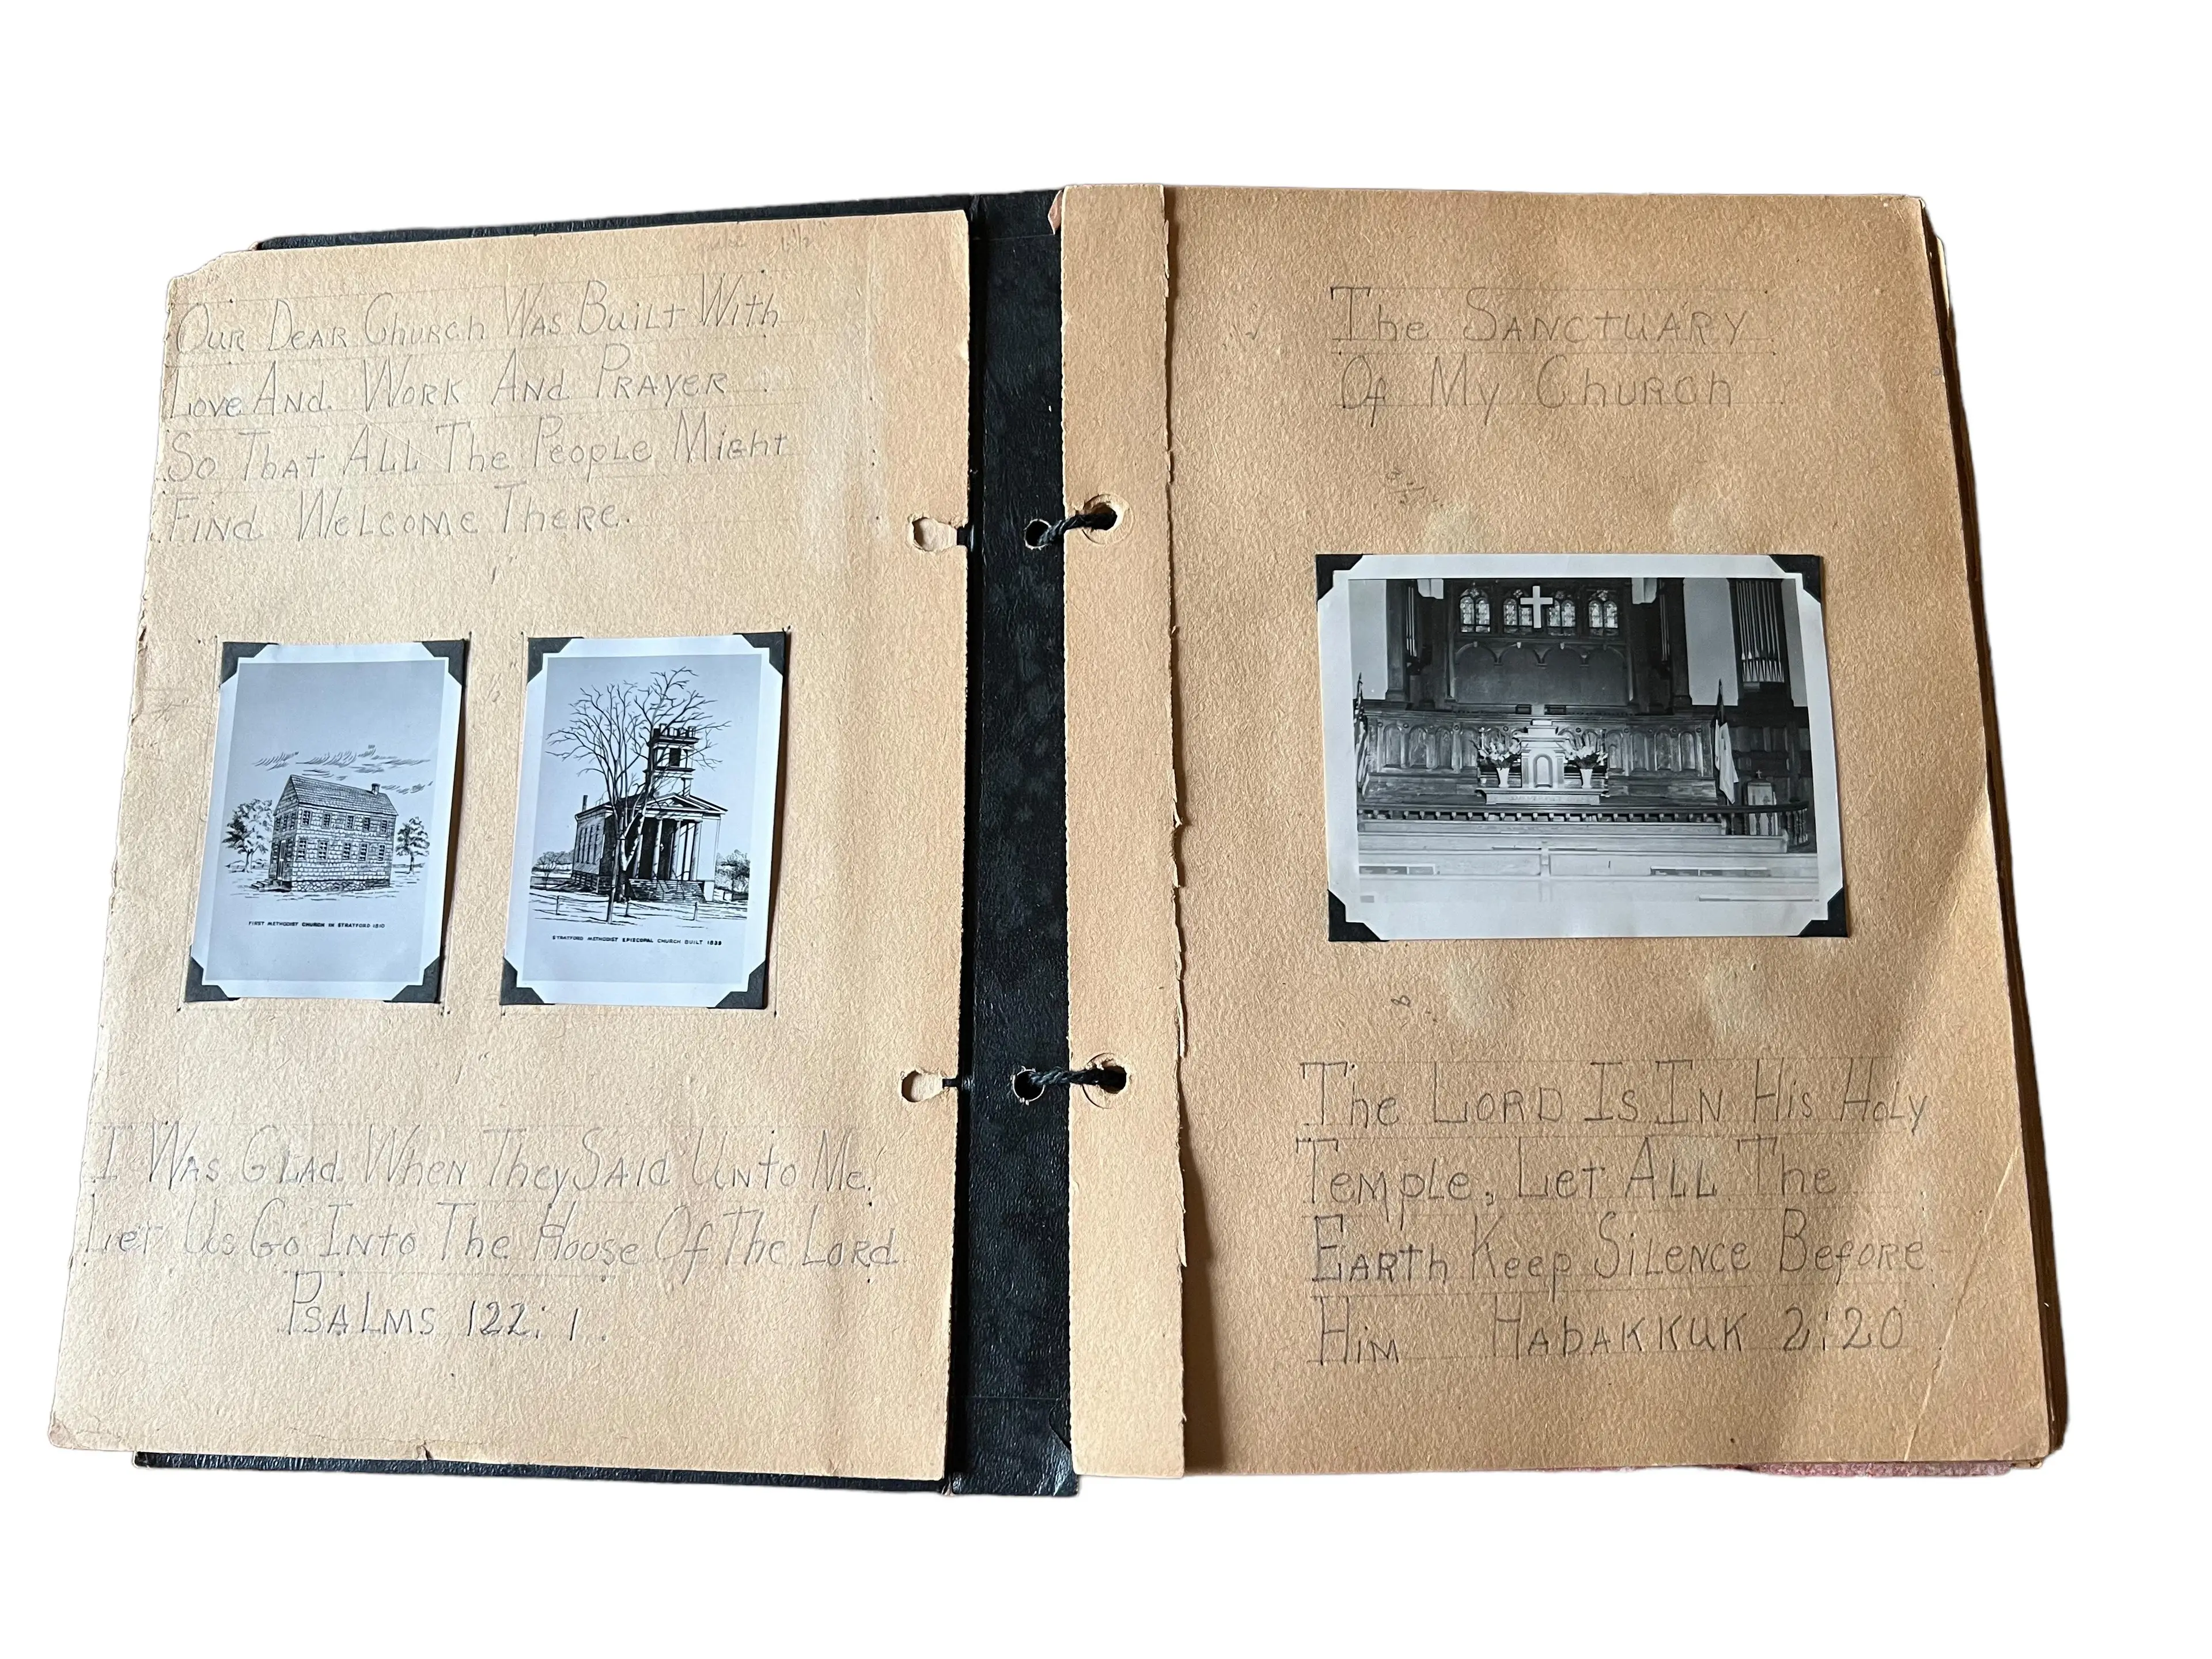 Our Dear Church Was Built With
Love And Work And Prayer
So That All The People Might
Find Welcome There.
FIRST METHODIST CHURCH IN STRATFORD 1810
STRATFORD METHODIST EPISCOPAL CHURCH BUILT 1839
I Was Glad When They Said Unto Me,
Let Us Go Into The House Of The Lord
Psalms 122:1.
The Sanctuary
Of My Church
The Lord Is In His Holy
Temple, Let All The
Earth Keep Silence Before
Him Habakkuk 2:20